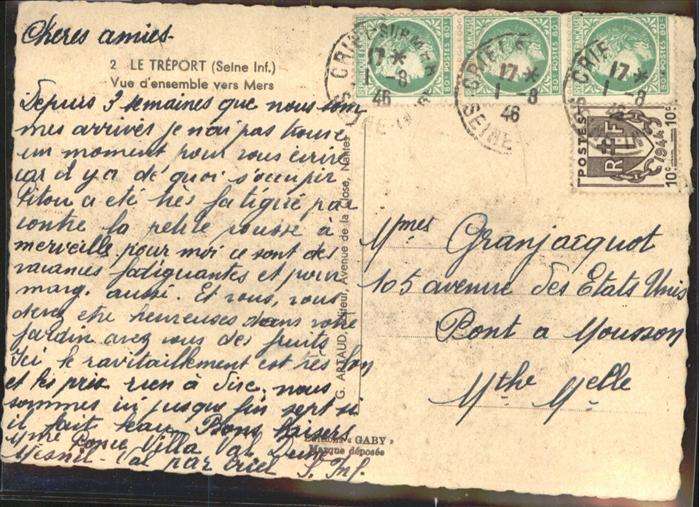 Cheres amies
2 LE TRÉPORT (Seine Inf.)
Vue d'ensemble vers Mers
Depuis 3 semaines que nous som
mes arrivés je n'ai pas trouvé
un moment pour vous écrire
car il y a de quoi s'occuper
Pitou a été très fatigué par
contre la petite pousse à
merveille pour moi ce sont des
vacances fatiguantes et pour
marg. aussi. Et vous, vous
devez etre heureuses dans votre
jardin avez vous des fruits
Ici le ravitaillement est très bon
et les prix rien à dire, nous
sommes ici jusque fin sept si
il fait beau Bons baisers
Mme Villa Val
Mesnil-Val par Criel S. Inf.
G. ARTAUD, Éditeur, Avenue de la Close, Nantes
Editions « GABY »
Marque déposée
CRIEL-SUR-MER
17 *
1 -8
46
SEINE-INFRE
CRIEL
17 *
1 -8
46
SEINE
CRIE
17 *
1 -8
46
S
POSTES
RF
1944
10c
10c
Mmes Granjacquot
105 avenue des Etats Unis
Pont a Mousson
Mthe Melle